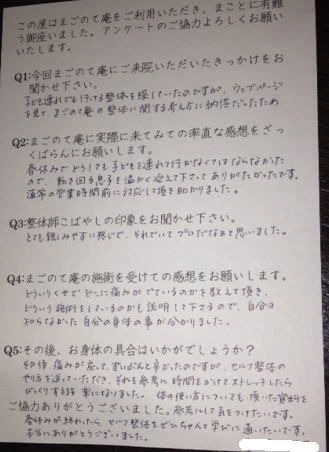 この度はまごのて庵をご利用いただき、まことに有難
う御座いました。アンケートのご協力よろしくお願い
いたします。
Q1:今回まごのて庵にご来院いただいたきっかけをお
聞かせ下さい。
子ども連れでも行ける整体を探していたのですが、ウェブページ
を見て、まごのて庵の整体に関する考え方に納得だったため
Q2:まごのて庵に実際に来てみての率直な感想をざっ
くばらんにお願いします。
春休みでどうしても子どもを連れて行かなくてはならなかった
ので、動き回る息子を温かく迎えて下さってありがたかったです。
通常の営業時間前に対応して頂き助かりました。
Q3:整体師こばやしの印象をお聞かせ下さい。
とても親しみやすい感じで、それでいてプロだなぁと思いました。
Q4:まごのて庵の施術を受けての感想をお願いします。
どういうくせでどこに痛みがでているのかを教えて頂き、
どういう施術をしているのかも説明して下さるので、自分の
知らなかった自分の身体の事が分かりました。
Q5:その後、お身体の具合はいかがでしょうか?
その後、痛みが戻って、ずいぶん辛かったのですが、セルフ整体の
やり方を送っていただき、それを参考に時間をかけてストレッチしたら
びっくりする程楽になりました。体の使い方についても、頂いた資料を
ご協力ありがとうございました。参考にして気をつけたいです。
春休みが終わったら、セルフ整体をぜひちゃんと学びに通いたいです。
本当にありがとうございました。